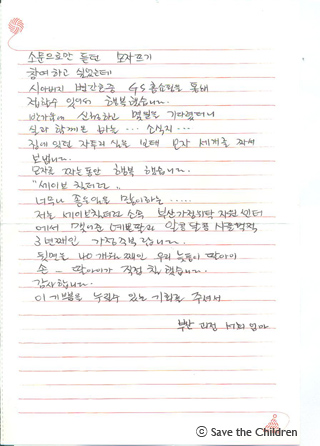 소문으로만 듣던 모자뜨기
참여하고 싶었는데
시아버지 병간호중 GS홈쇼핑을 통해
접할수 있어서 행복했습니다.
반가움에 신청하고 몇일을 기다렸더니
실과 함께로 하는 ... 소식지 ...
집에 있던 자투리 실을 보태 모자 세개를 짜서
보냅니다.
모자를 짜는동안 행복 했습니다.
"세이브 칠더런"
너무나 좋은일을 많이하는 .....
저는 세이브칠더런 소속 부산가정위탁 지원센터
에서 맺어준 딸과 알콩달콩 사는
3년째인 가정 입니다.
뒷면은 40개월 째인 우리 늦둥이 딸아이
손 - 딸아이가 직접 했습니다.
감사합니다.
이 기쁨을 누릴수 있는 기회를 주셔서
부산 엄마
ⓒ Save the Children